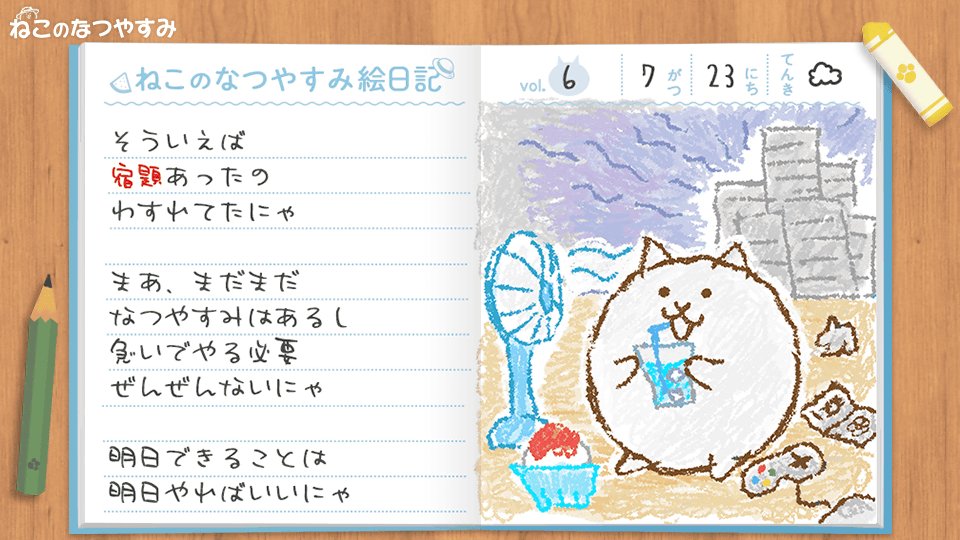 ねこのなつやすみ
ねこのなつやすみ絵日記
vol. 6 7 がつ 23 にち てんき
そういえば
宿題あったの
わすれてたにゃ
まあ、まだまだ
なつやすみはあるし
急いでやる必要
ぜんぜんないにゃ
明日できることは
明日やればいいにゃ